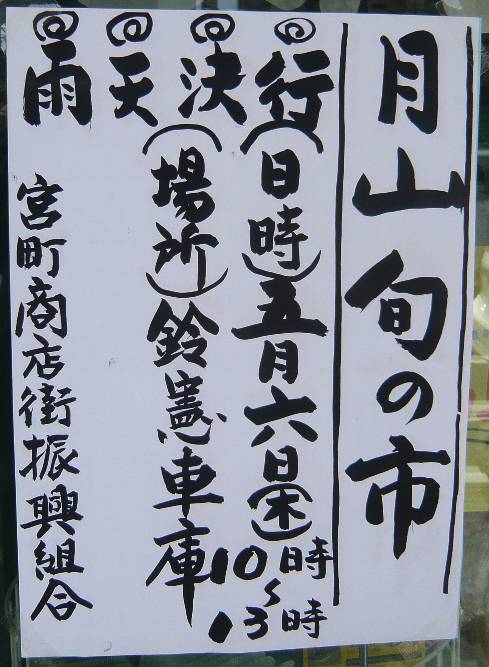 月山旬の市
(日時)五月六日(木)
10時~13時
(場所)鈴憲車庫
雨天決行
宮町商店街振興組合